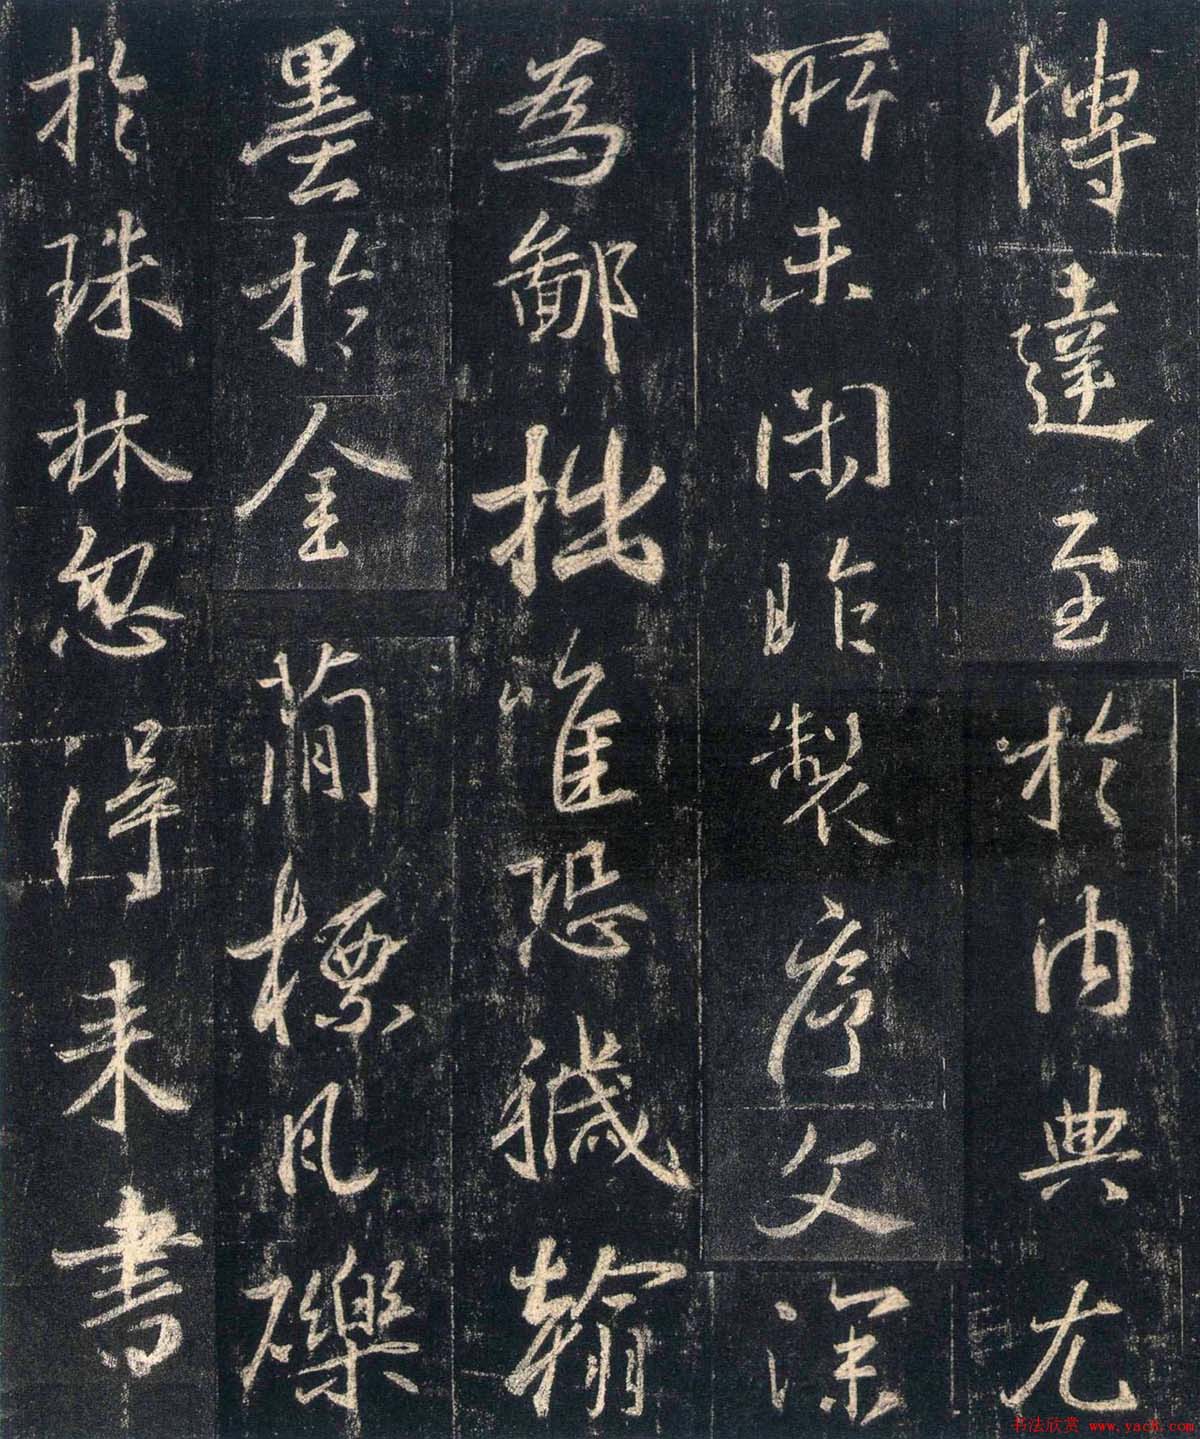 慱達至於内典尤
所未閑昨製序文深
為鄙拙唯恐穢翰
墨於金蕳標瓦礫
於珠林忽得来書
书法欣赏 www.yac8.com